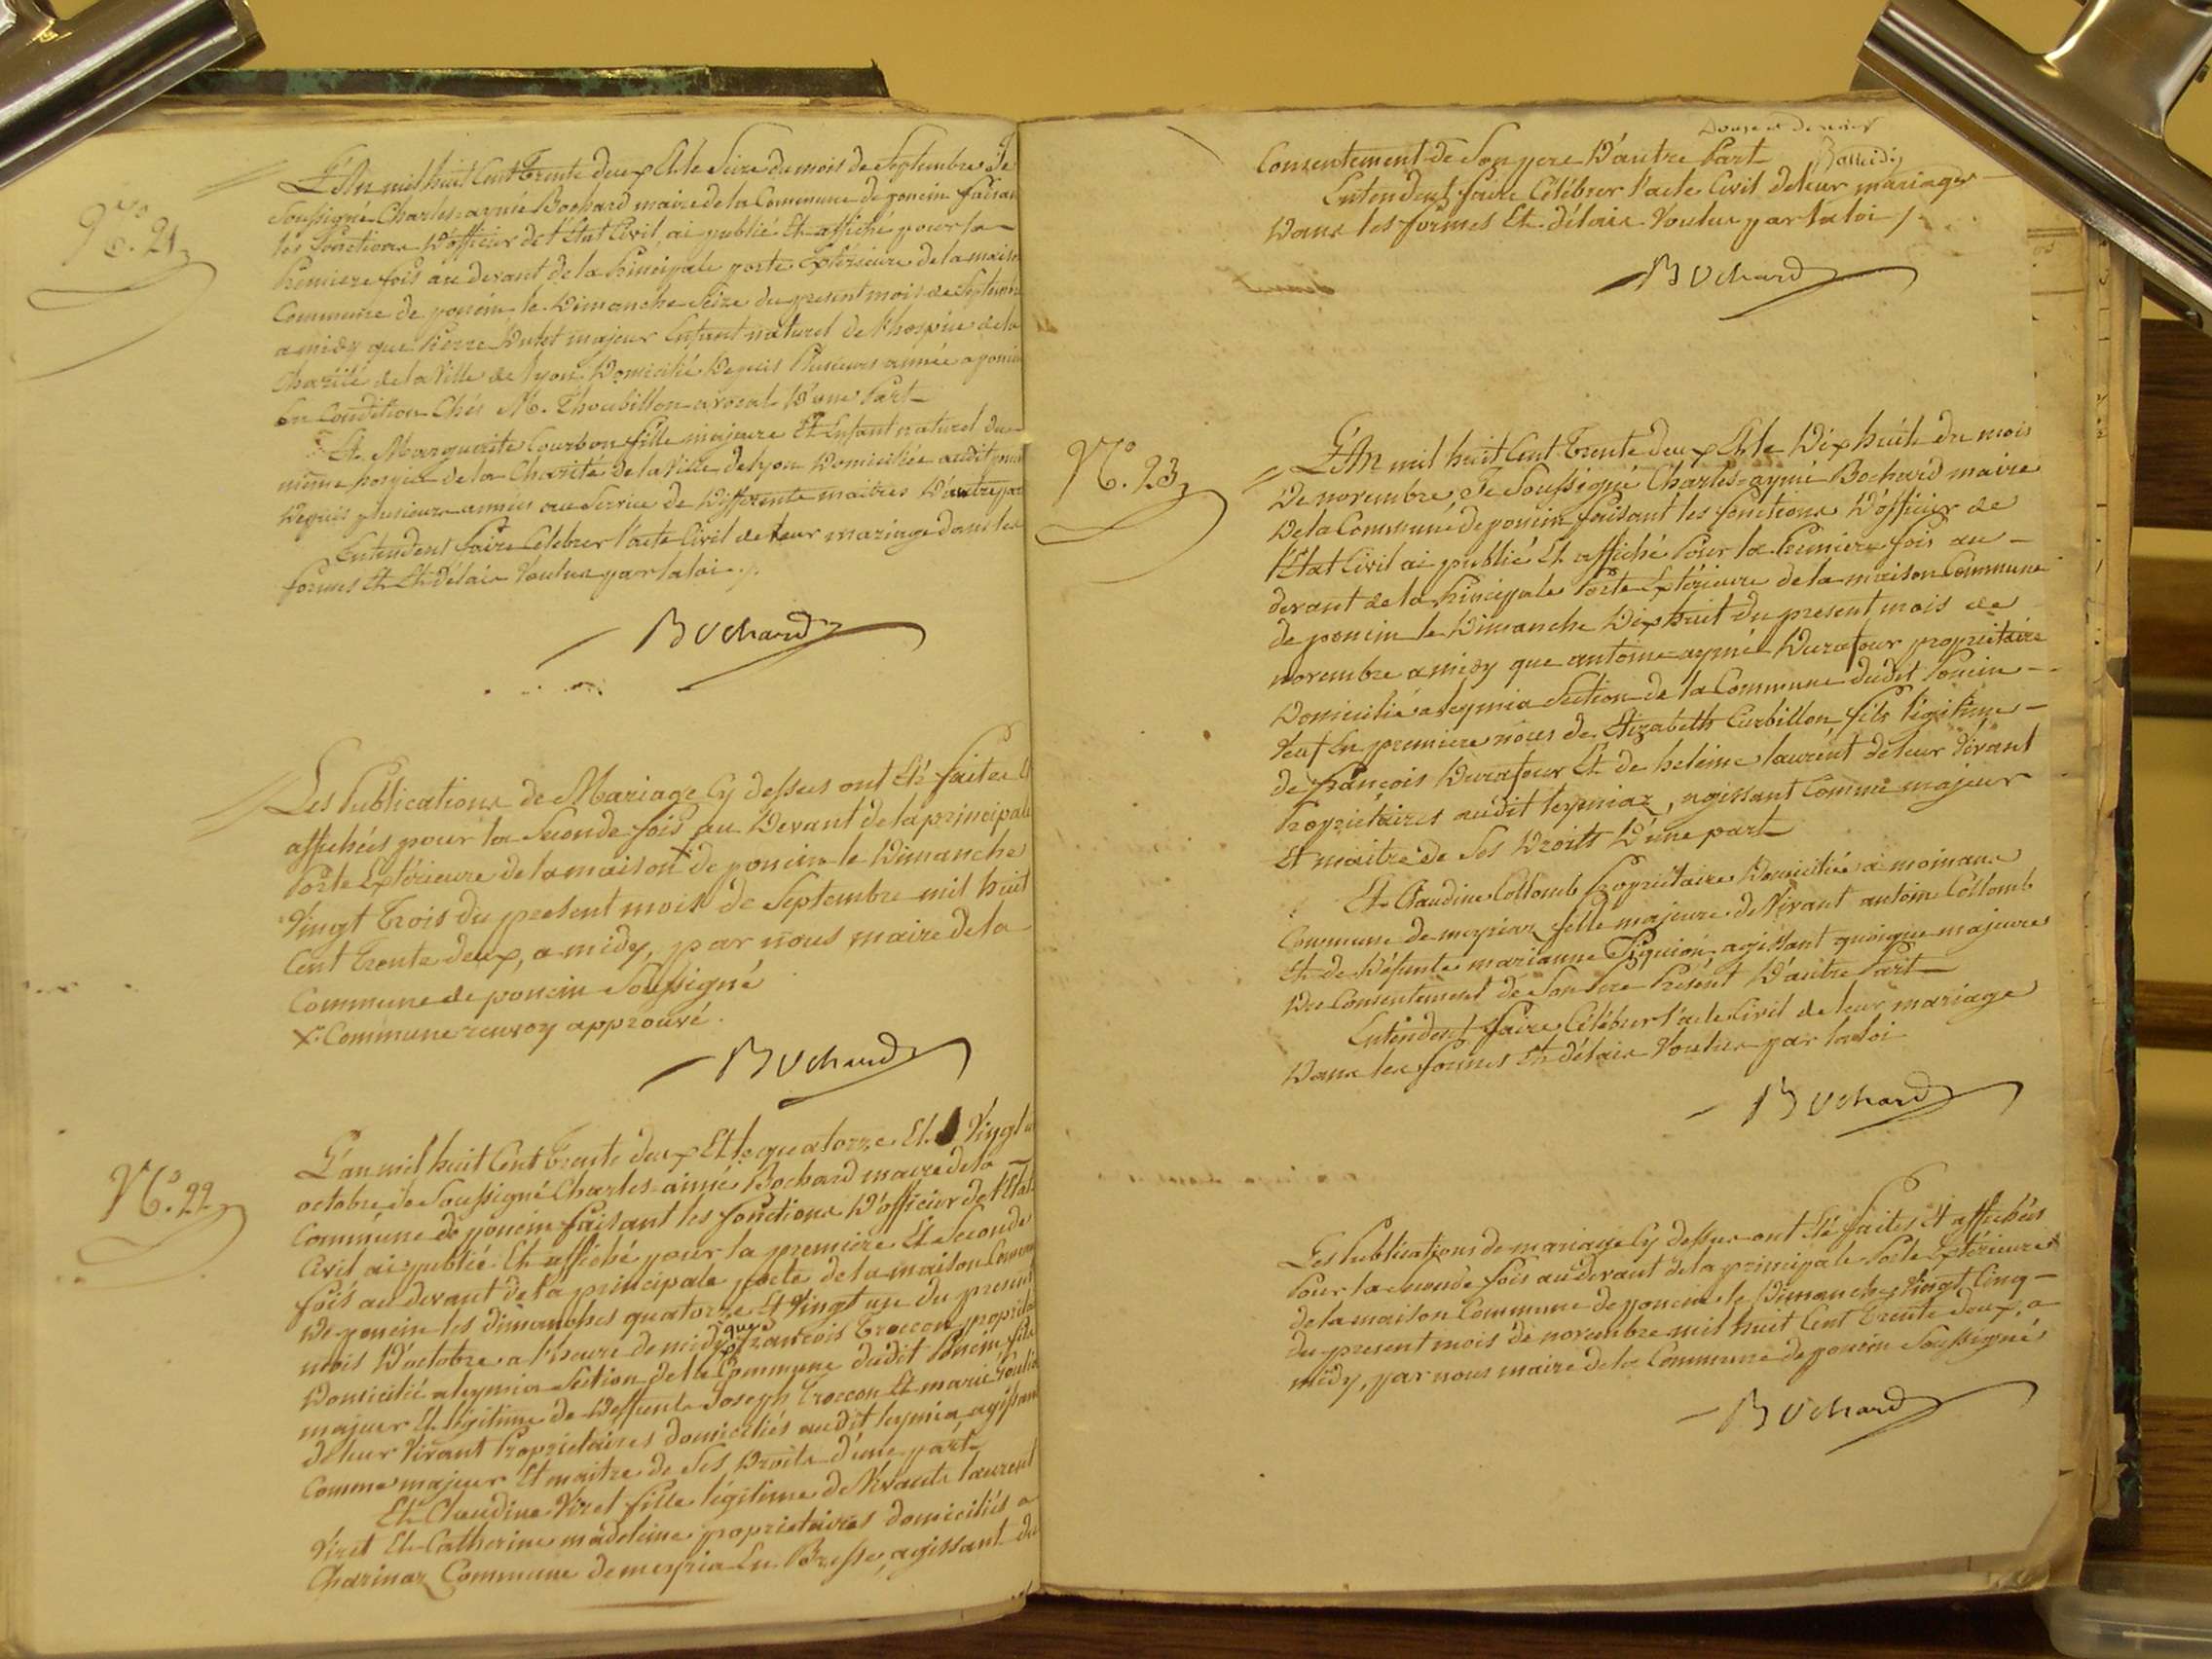 N.o 21
L'An mil huit Cent Trente deux Et le Seize du mois de Septembre Je
Soussigné Charles-aymé Bochard maire de la Commune de poncin faisan
les fonctions D'officier de l'État Civil, ai publié Et affiché pour la
Premiere fois au devant de la Principale porte Extérieure de la maison
Commune de poncin le Dimanche Seize du present mois de Septembre
a midy que Pierre majeur Enfant naturel de l'hospice de la
Charité de la Ville de Lyon, Domicilié Depuis Plusieurs année a poncin
En Condition Chés M. Thoubillon avocat D'une Part
Et Marguerite Courbon fille majeure Et Enfant naturel du
même hospice de la Charité de la Ville de Lyon Domiciliée audit poncin
Depuis plusieurs années au Service de Differents maitres D'autre par
Entendent faire Celebrer l'acte Civil de leur mariage dans les
formes Et Et délais Voulus par la loi ./.
Bochard
Les Publications de Mariage Cy dessus ont Eté faites Et
affichées pour la Seconde fois au Devant de la principale
Porte Extérieure de la maison x de poncin le Dimanche
Vingt Trois du present mois de Septembre mil huit
Cent Trente deux, a midy, par nous maire de la
Commune de poncin Soussigné
X. Commune renvoy approuvé.
Bochard
N.o 22
L'an mil huit Cent Trente deux Et le quatorze Et Vingt u
octobre Je Soussigné Charles-aimé Bochard maire de la
Commune de poncin faisant les fonctions D'officier de l'Etat
Civil ai publié Et affiché pour la premiere Et Seconde
fois au devant de la principale porte de la maison Commun
De poncin les dimanches quatorze Et Vingt un du present
mois D'octobre a l'heure de midy que françois Troccon propriéta
Domicilié a leymia Section de la Commune dudit Poncin, fils
majeur Et légitime de Deffunts Joseph Troccon Et marie
de leur Vivant Proprietaires domiciliés audit leymia, agissan
Comme majeur Et maitre de Ses Droits d'une part
Et Claudine Viret fille légitime de Vivants laurent
Viret Et Catherine madeleine proprietaires domiciliés a
Charinaz Commune de meyria En Bresse, agissant du
Douze et dernier
Ballaidy
Consentement de Son pere D'autre Part
Entendent faire Célébrer l'acte Civil de leur mariage
Dans les formes Et délais Voulus par la loi /.
Bochard
N.o 23
L'An mil huit Cent Trente deux Et le Dix huit du mois
De novembre, Je Soussigné Charles-aymé Bochard maire
De la Commune de poncin faisant les fonctions D'officier de
l'Etat Civil ai publié Et affiché Pour la Premiere fois au
devant de la Principale Porte Extérieure de la maison Commune
de poncin le Dimanche Dix huit du present mois de
novembre a midy que antoine-aymé Durafour proprietaire
Domicilié a leymia Section de la Commune dudit Poncin
Veuf En premiere noces de Elizabeth Curbillon, fils légitime
de François Durafour Et de heleine laurent de leur Vivant
Propriétaires audit leymiaz, agissant Comme majeur
Et maitre de Ses Droits D'une part
Et Claudine Collomb Propriétaire Domiciliée a moinans
Commune de meyriaz fille majeure de Vivant antoine Collomb
Et de Défunte marianne Piquion, agissant quoique majeure
Du Consentement de Son Pere Présent D'autre Part
Entendent faire Célébrer l'acte Civil de leur mariage
Dans les formes Et délais Voulus par la loi
Bochard
Les Publications de mariage Cy dessus ont Eté faites Et affichées
Pour la Seconde fois au devant de la principale Porte Extérieure
de la maison Commune de poncin le Dimanche Vingt Cinq
du present mois de novembre mil huit Cent Trente deux, a
midy, par nous maire de la Commune de poncin Soussigné
Bochard